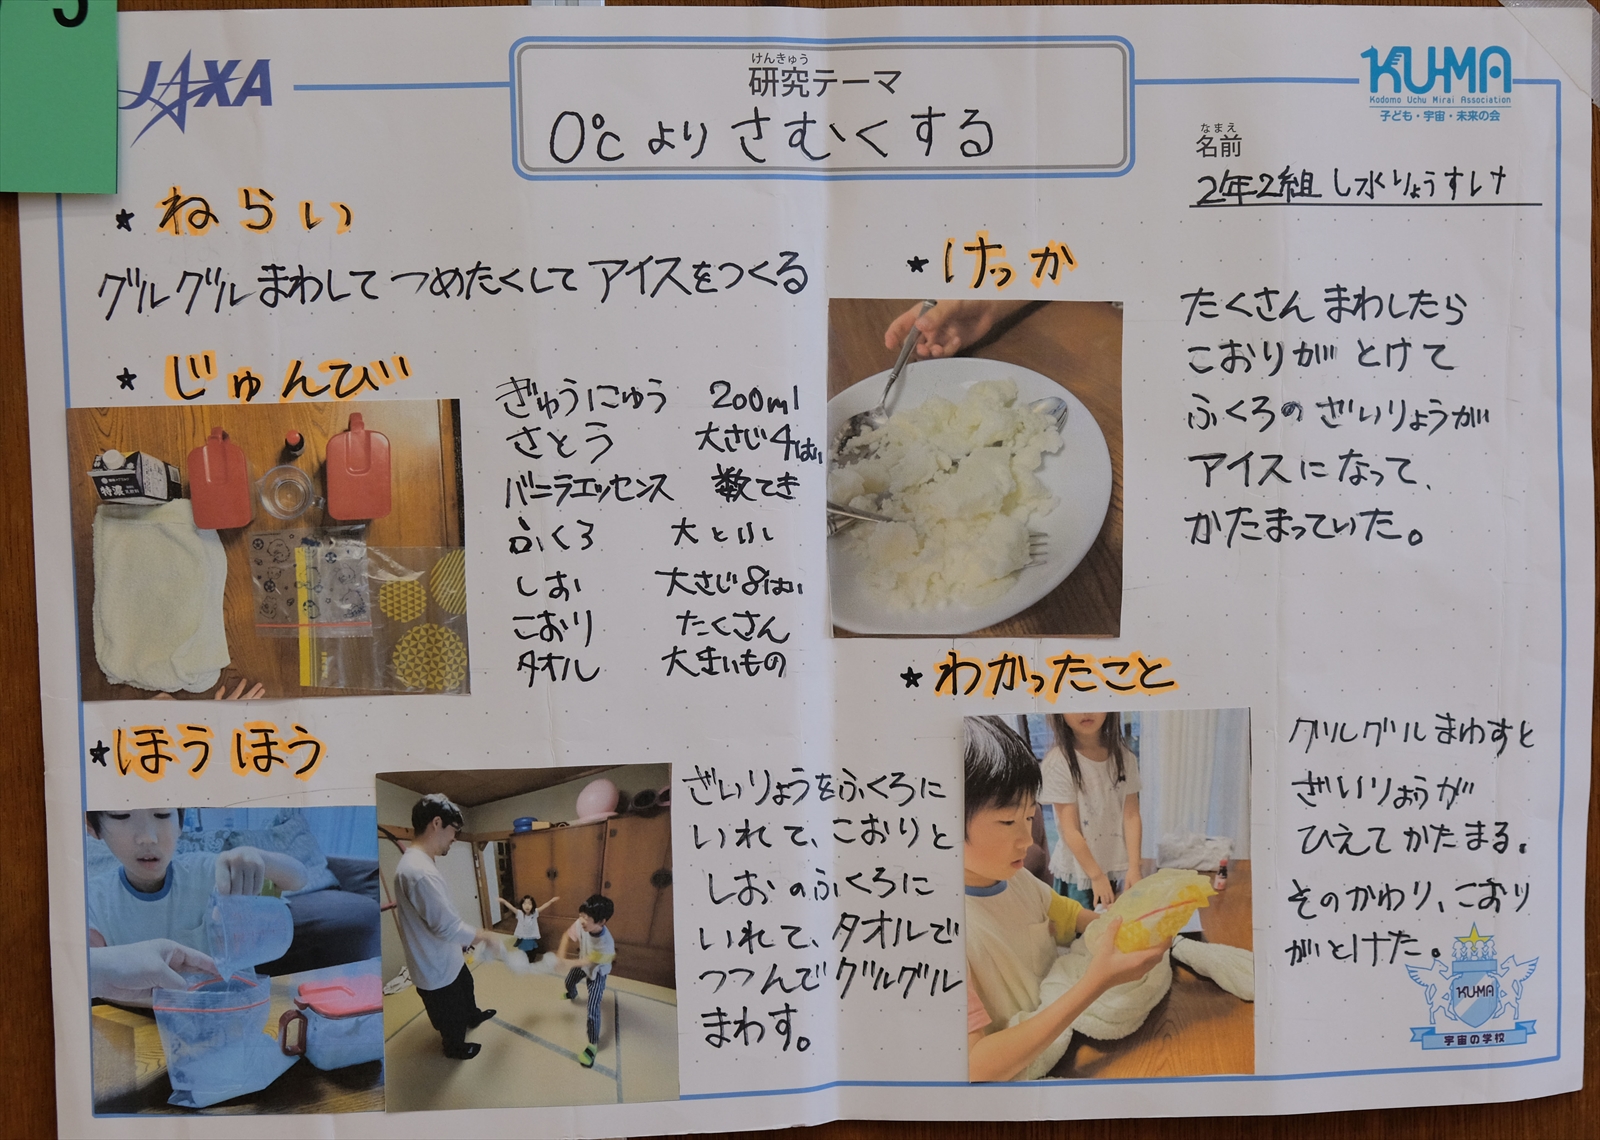 JAXA
けんきゅう
研究テーマ
0℃よりさむくする
KU-MA
Kodomo Uchu Mirai Association
子ども・宇宙・未来の会
なまえ
名前
2年2組 し水りょうすけ
★ ねらい
グルグルまわして つめたくして アイスをつくる
★ じゅんび
特濃
ぎゅうにゅう 200ml
さとう 大さじ4はい
バニラエッセンス 数てき
ふくろ 大と小
しお 大さじ8はい
こおり たくさん
タオル 大きいもの
★ ほうほう
ざいりょうをふくろに
いれて、こおりと
しおのふくろに
いれて、タオルで
つつんでグルグル
まわす。
★ けっか
たくさん まわしたら
こおりが とけて
ふくろの ざいりょうが
アイスに なって、
かたまっていた。
★ わかったこと
グルグルまわすと
ざいりょうが
ひえて かたまる。
そのかわり、こおり
がとけた。
KU-MA
宇宙の学校